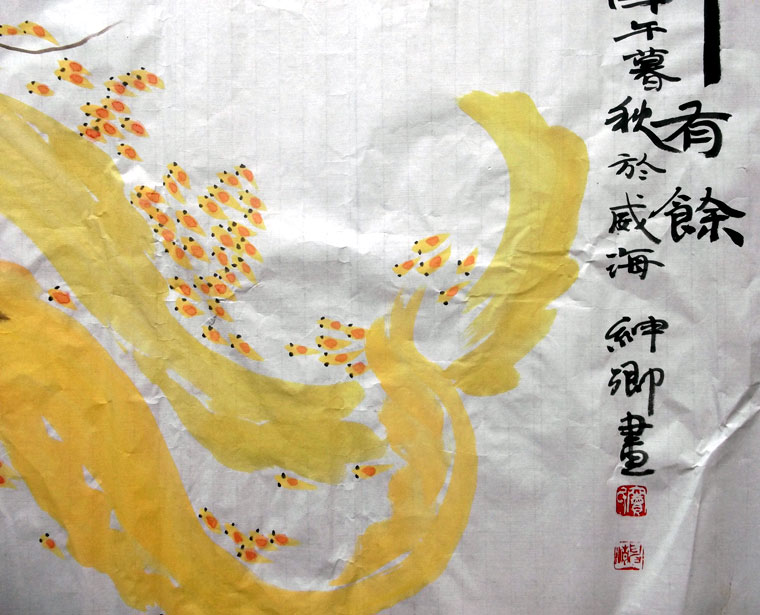 有餘
午暮秋於威海 紳卿畫